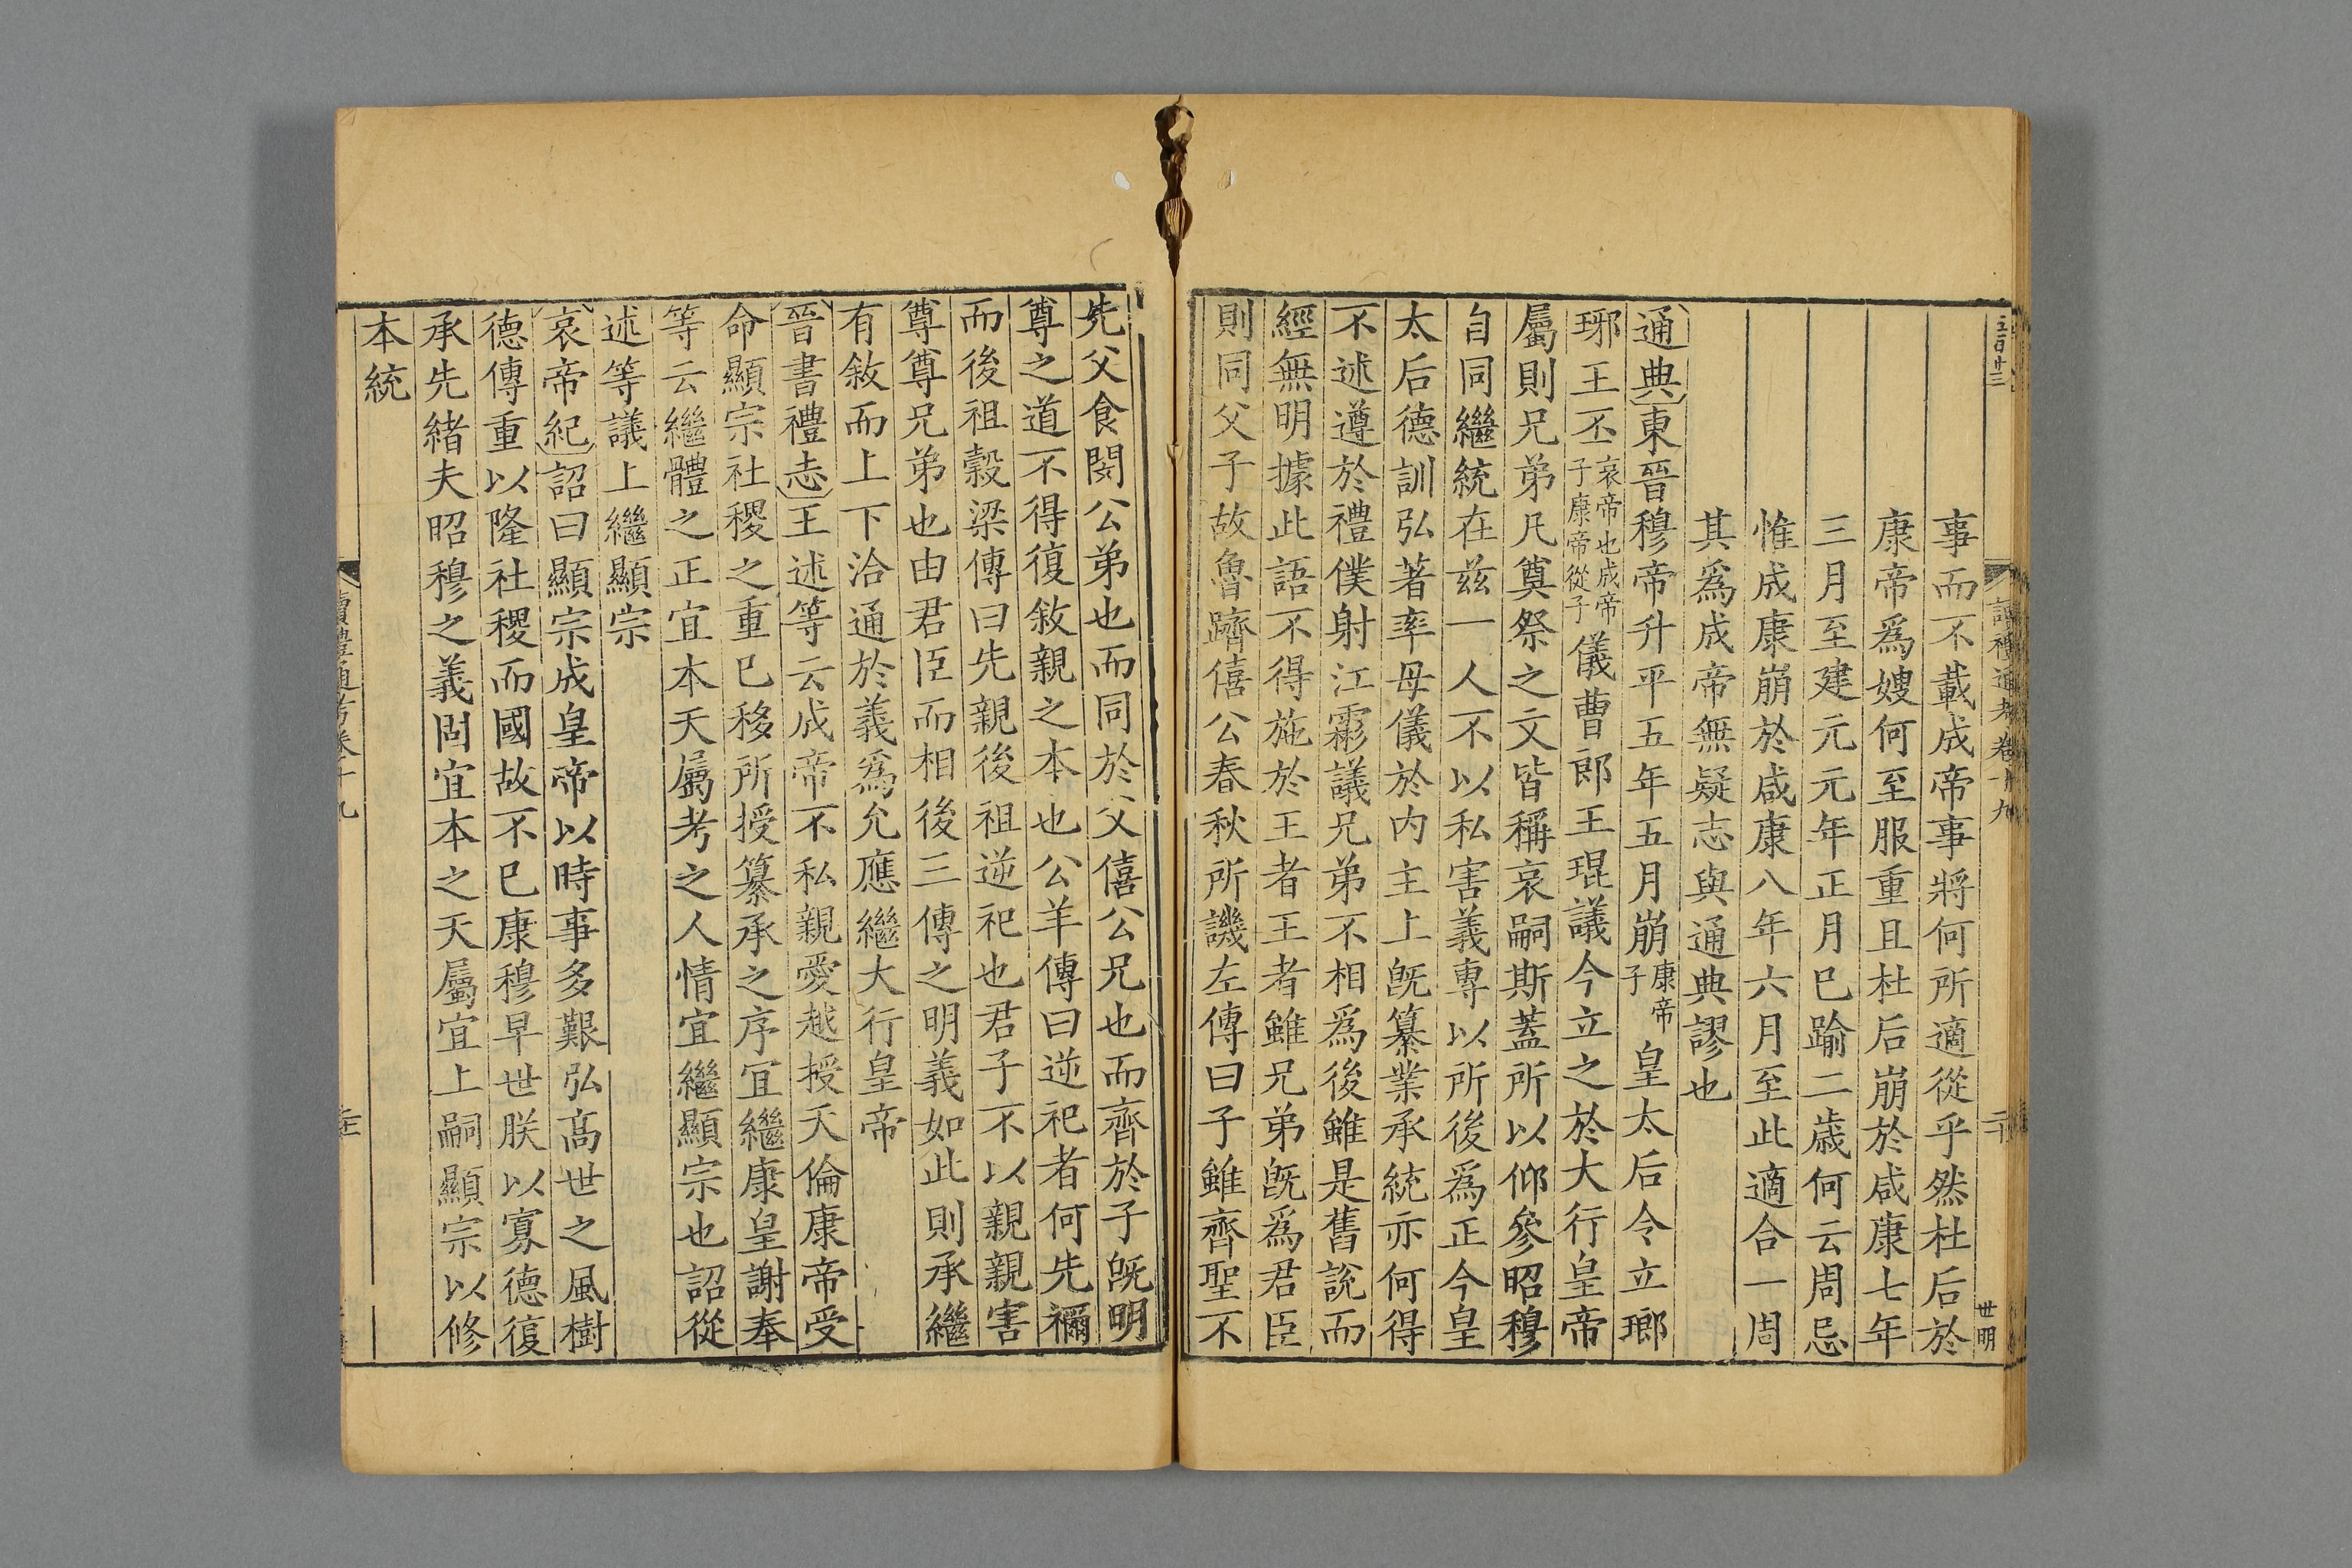 讀禮通考卷十九
二十
世明
事而不載成帝事將何所適從乎然杜后於
康帝爲嫂何至服重且杜后崩於咸康七年
三月至建元元年正月已踰二歲何云周忌
惟成康崩於咸康八年六月至此適合一周
其爲成帝無疑志與通典謬也
通典東晉穆帝升平五年五月崩康帝子皇太后令立瑯
琊王丕哀帝也成帝子康帝從子儀曹郎王琨議今立之於大行皇帝
屬則兄弟凡奠祭之文皆稱哀嗣斯蓋所以仰參昭穆
自同繼統在兹一人不以私害義專以所後爲正今皇
太后德訓弘著率母儀於内主上旣纂業承統亦何得
不述遵於禮僕射江霦議兄弟不相爲後雖是舊說而
經無明據此語不得施於王者王者雖兄弟旣爲君臣
則同父子故魯躋僖公春秋所譏左傳曰子雖齊聖不
先父食閔公弟也而同於父僖公兄也而齊於子旣明
尊之道不得復敘親之本也公羊傳曰逆祀者何先禰
而後祖穀梁傳曰先親後祖逆祀也君子不以親親害
尊尊兄弟也由君臣而相後三傳之明義如此則承繼
有敘而上下洽通於義爲允應繼大行皇帝
晉書禮志王述等云成帝不私親愛越授天倫康帝受
命顯宗社稷之重已移所授纂承之序宜繼康皇謝奉
等云繼體之正宜本天屬考之人情宜繼顯宗也詔從
述等議上繼顯宗
哀帝紀詔曰顯宗成皇帝以時事多艱弘高世之風樹
德傳重以隆社稷而國故不已康穆早世朕以寡德復
承先緒夫昭穆之義固宜本之天屬宜上嗣顯宗以修
本統
讀禮通考卷十九